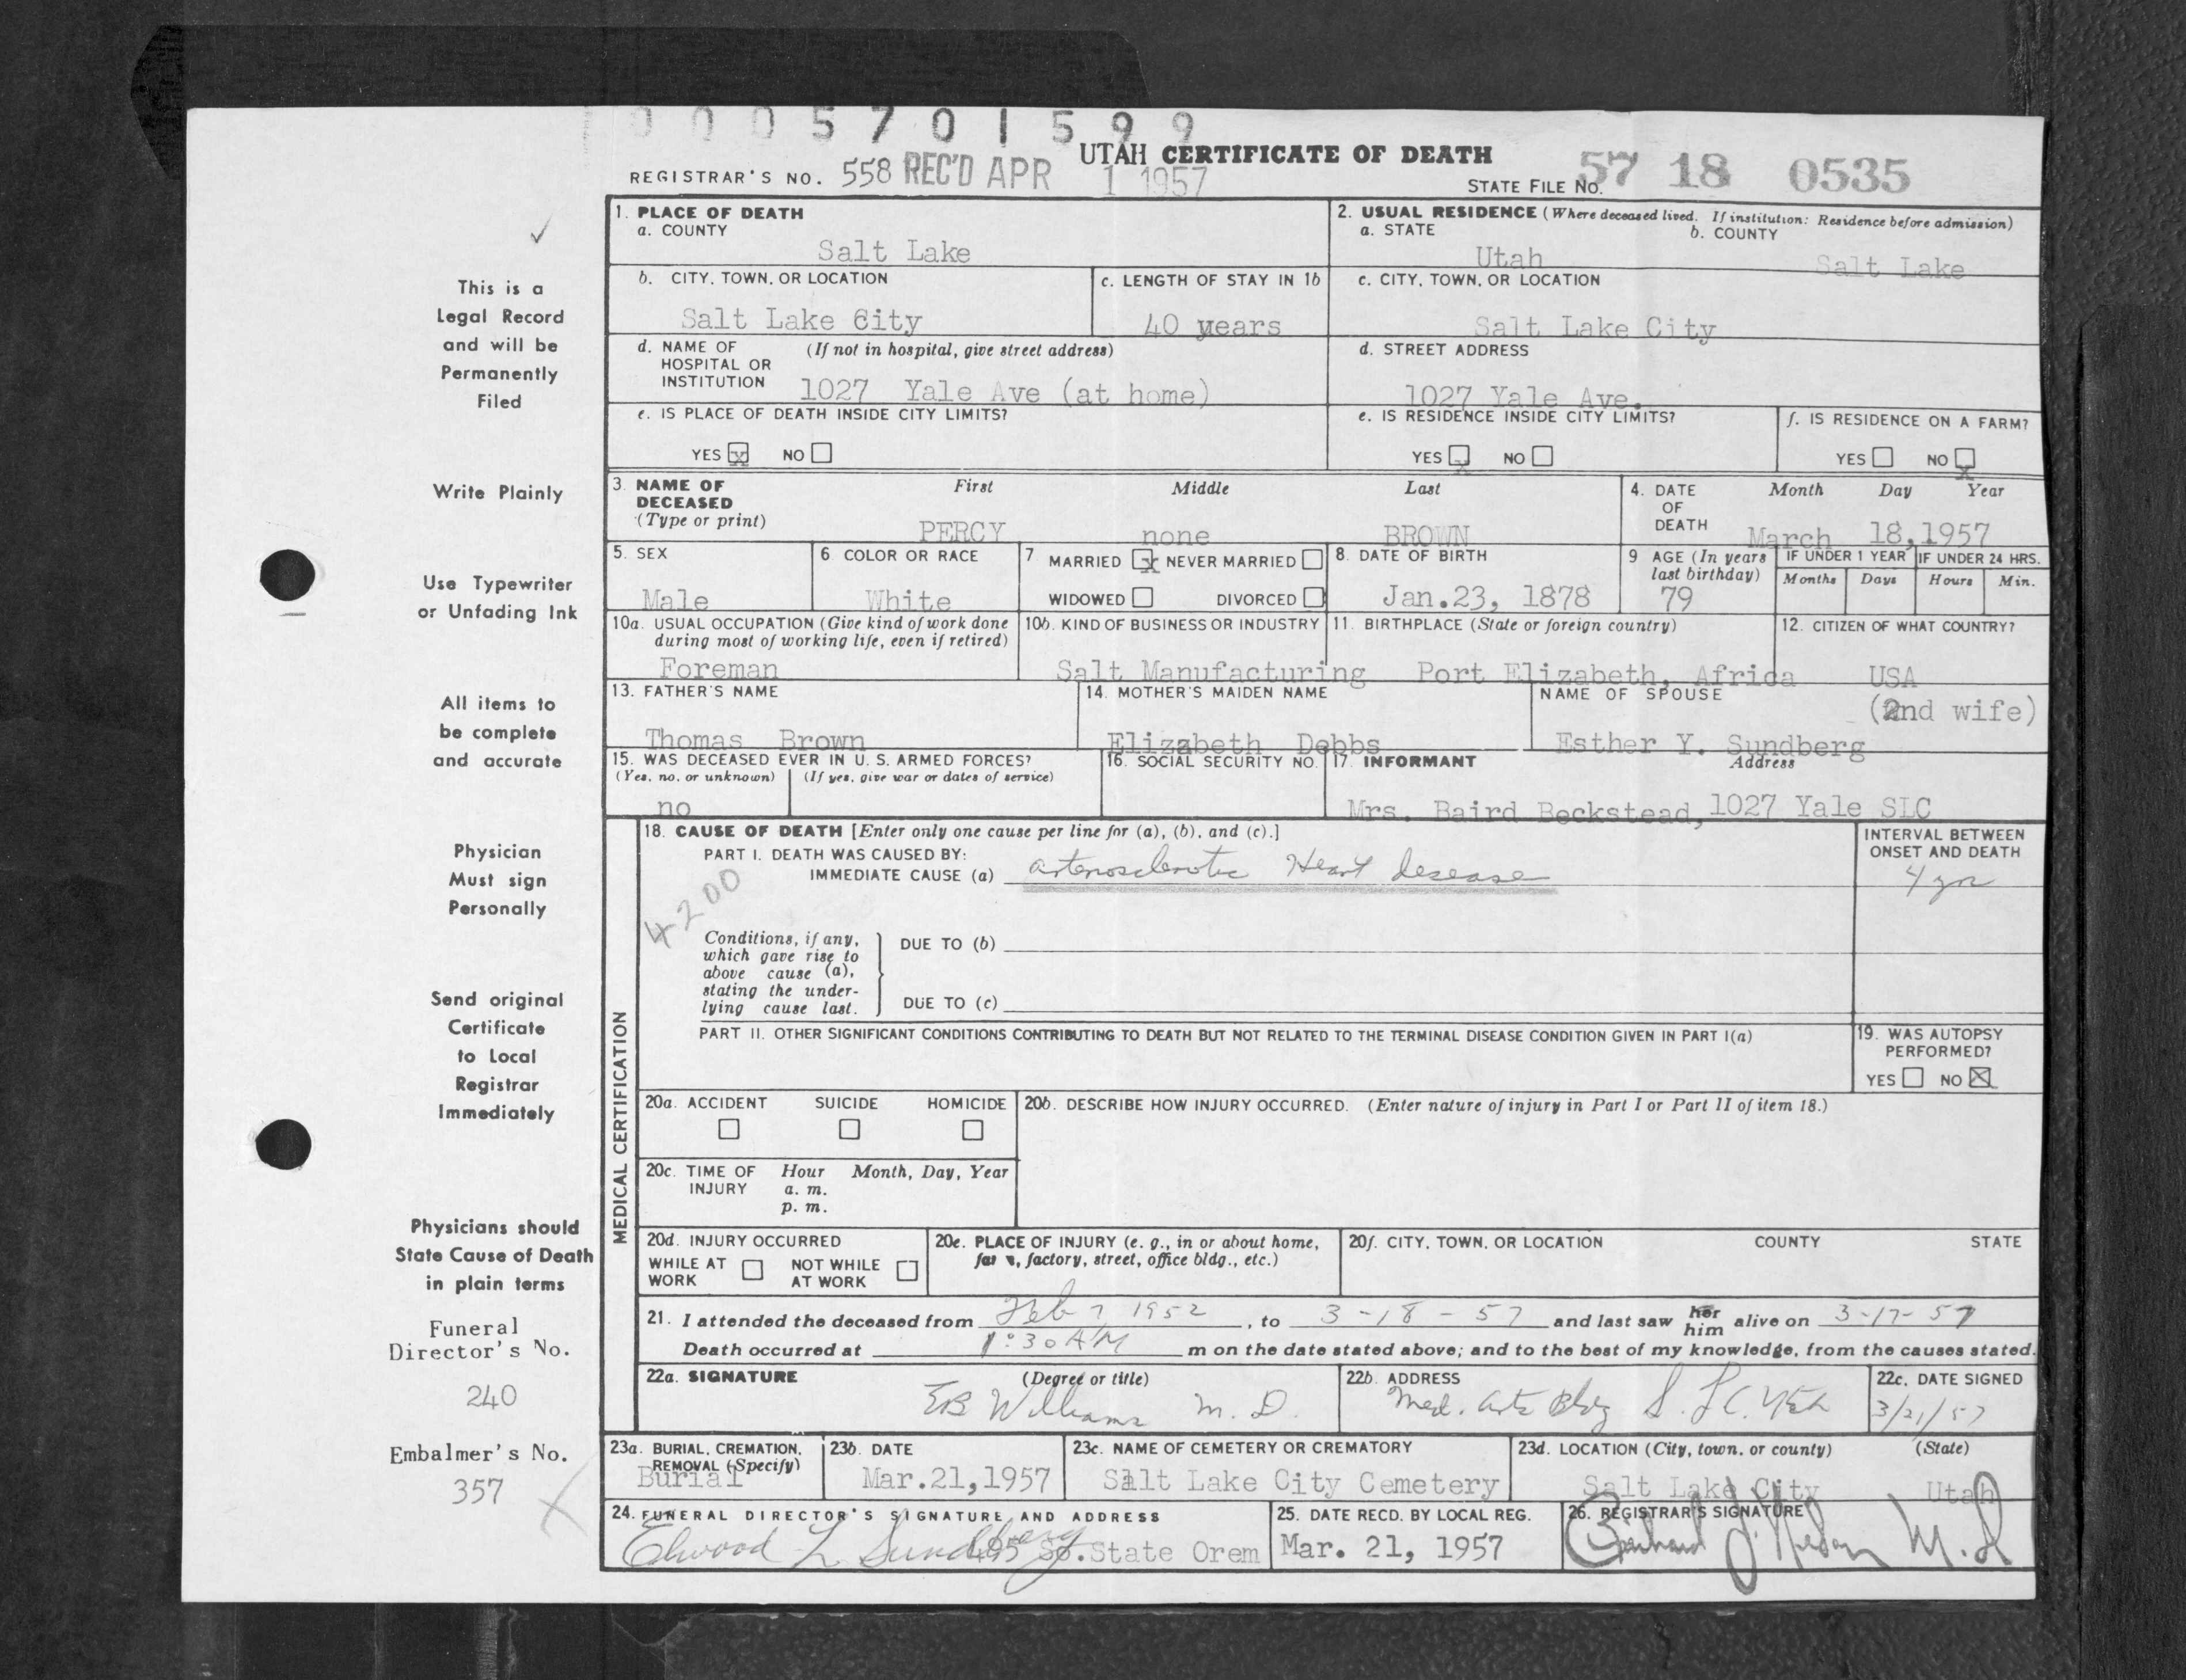 0005701599
UTAH CERTIFICATE OF DEATH
REGISTRAR'S NO. 558 REC'D APR 1 1957
STATE FILE NO. 57 18 0535
This is a
Legal Record
and will be
Permanently
Filed
Write Plainly
Use Typewriter
or Unfading Ink
All items to
be complete
and accurate
Physician
Must sign
Personally
Send original
Certificate
to Local
Registrar
Immediately
Physicians should
State Cause of Death
in plain terms
Funeral
Director's No.
240
Embalmer's No.
357
1. PLACE OF DEATH
a. COUNTY
Salt Lake
2. USUAL RESIDENCE (Where deceased lived. If institution: Residence before admission)
a. STATE b. COUNTY
Utah Salt Lake
b. CITY, TOWN, OR LOCATION
Salt Lake City
c. LENGTH OF STAY IN 1b
40 years
c. CITY, TOWN, OR LOCATION
Salt Lake City
d. NAME OF (If not in hospital, give street address)
HOSPITAL OR
INSTITUTION 1027 Yale Ave (at home)
d. STREET ADDRESS
1027 Yale Ave.
e. IS PLACE OF DEATH INSIDE CITY LIMITS?
YES x NO
e. IS RESIDENCE INSIDE CITY LIMITS?
YES x NO
f. IS RESIDENCE ON A FARM?
YES NO x
3. NAME OF First Middle Last
DECEASED
(Type or print)
PERCY none BROWN
4. DATE Month Day Year
OF
DEATH March 18,1957
5. SEX
Male
6. COLOR OR RACE
White
7 MARRIED x NEVER MARRIED
WIDOWED DIVORCED
8. DATE OF BIRTH
Jan.23, 1878
9 AGE (In years
last birthday)
79
IF UNDER 1 YEAR IF UNDER 24 HRS.
Months Days Hours Min.
10a. USUAL OCCUPATION (Give kind of work done
during most of working life, even if retired)
Foreman
10b. KIND OF BUSINESS OR INDUSTRY
Salt Manufacturing
11. BIRTHPLACE (State or foreign country)
Port Elizabeth, Africa
12. CITIZEN OF WHAT COUNTRY?
USA
13. FATHER'S NAME
Thomas Brown
14. MOTHER'S MAIDEN NAME
Elizabeth Debbs
NAME OF SPOUSE
(2nd wife)
Esther Y. Sundberg
15. WAS DECEASED EVER IN U. S. ARMED FORCES?
(Yes, no, or unknown) (If yes, give war or dates of service)
no
16. SOCIAL SECURITY NO.
17. INFORMANT Address
Mrs. Baird Beckstead, 1027 Yale SLC
MEDICAL CERTIFICATION
18. CAUSE OF DEATH [Enter only one cause per line for (a), (b), and (c).]
PART I. DEATH WAS CAUSED BY:
IMMEDIATE CAUSE (a) arteriosclerotic Heart desease
INTERVAL BETWEEN
ONSET AND DEATH
4 yrs
4200
Conditions, if any,
which gave rise to
above cause (a),
stating the under-
lying cause last.
DUE TO (b)
DUE TO (c)
PART II. OTHER SIGNIFICANT CONDITIONS CONTRIBUTING TO DEATH BUT NOT RELATED TO THE TERMINAL DISEASE CONDITION GIVEN IN PART I(a)
19. WAS AUTOPSY
PERFORMED?
YES NO X
20a. ACCIDENT SUICIDE HOMICIDE
20b. DESCRIBE HOW INJURY OCCURRED. (Enter nature of injury in Part I or Part II of item 18.)
20c. TIME OF Hour Month, Day, Year
INJURY a. m.
p. m.
20d. INJURY OCCURRED
WHILE AT NOT WHILE
WORK AT WORK
20e. PLACE OF INJURY (e. g., in or about home,
farm, factory, street, office bldg., etc.)
20f. CITY, TOWN, OR LOCATION COUNTY STATE
21. I attended the deceased from Feb 7 1952, to 3-18-57 and last saw her him alive on 3-17-57
Death occurred at 1:30 AM m on the date stated above; and to the best of my knowledge, from the causes stated.
22a. SIGNATURE (Degree or title)
EB Williams M. D.
22b. ADDRESS
Med. Arts Bldg S.L.C. Utah
22c. DATE SIGNED
3/21/57
23a. BURIAL, CREMATION,
REMOVAL (Specify)
Burial
23b. DATE
Mar.21,1957
23c. NAME OF CEMETERY OR CREMATORY
Salt Lake City Cemetery
23d. LOCATION (City, town, or county) (State)
Salt Lake City Utah
24. FUNERAL DIRECTOR'S SIGNATURE AND ADDRESS
Elwood L Sundberg 495 So.State Orem
25. DATE RECD. BY LOCAL REG.
Mar. 21, 1957
26. REGISTRAR'S SIGNATURE
M.D